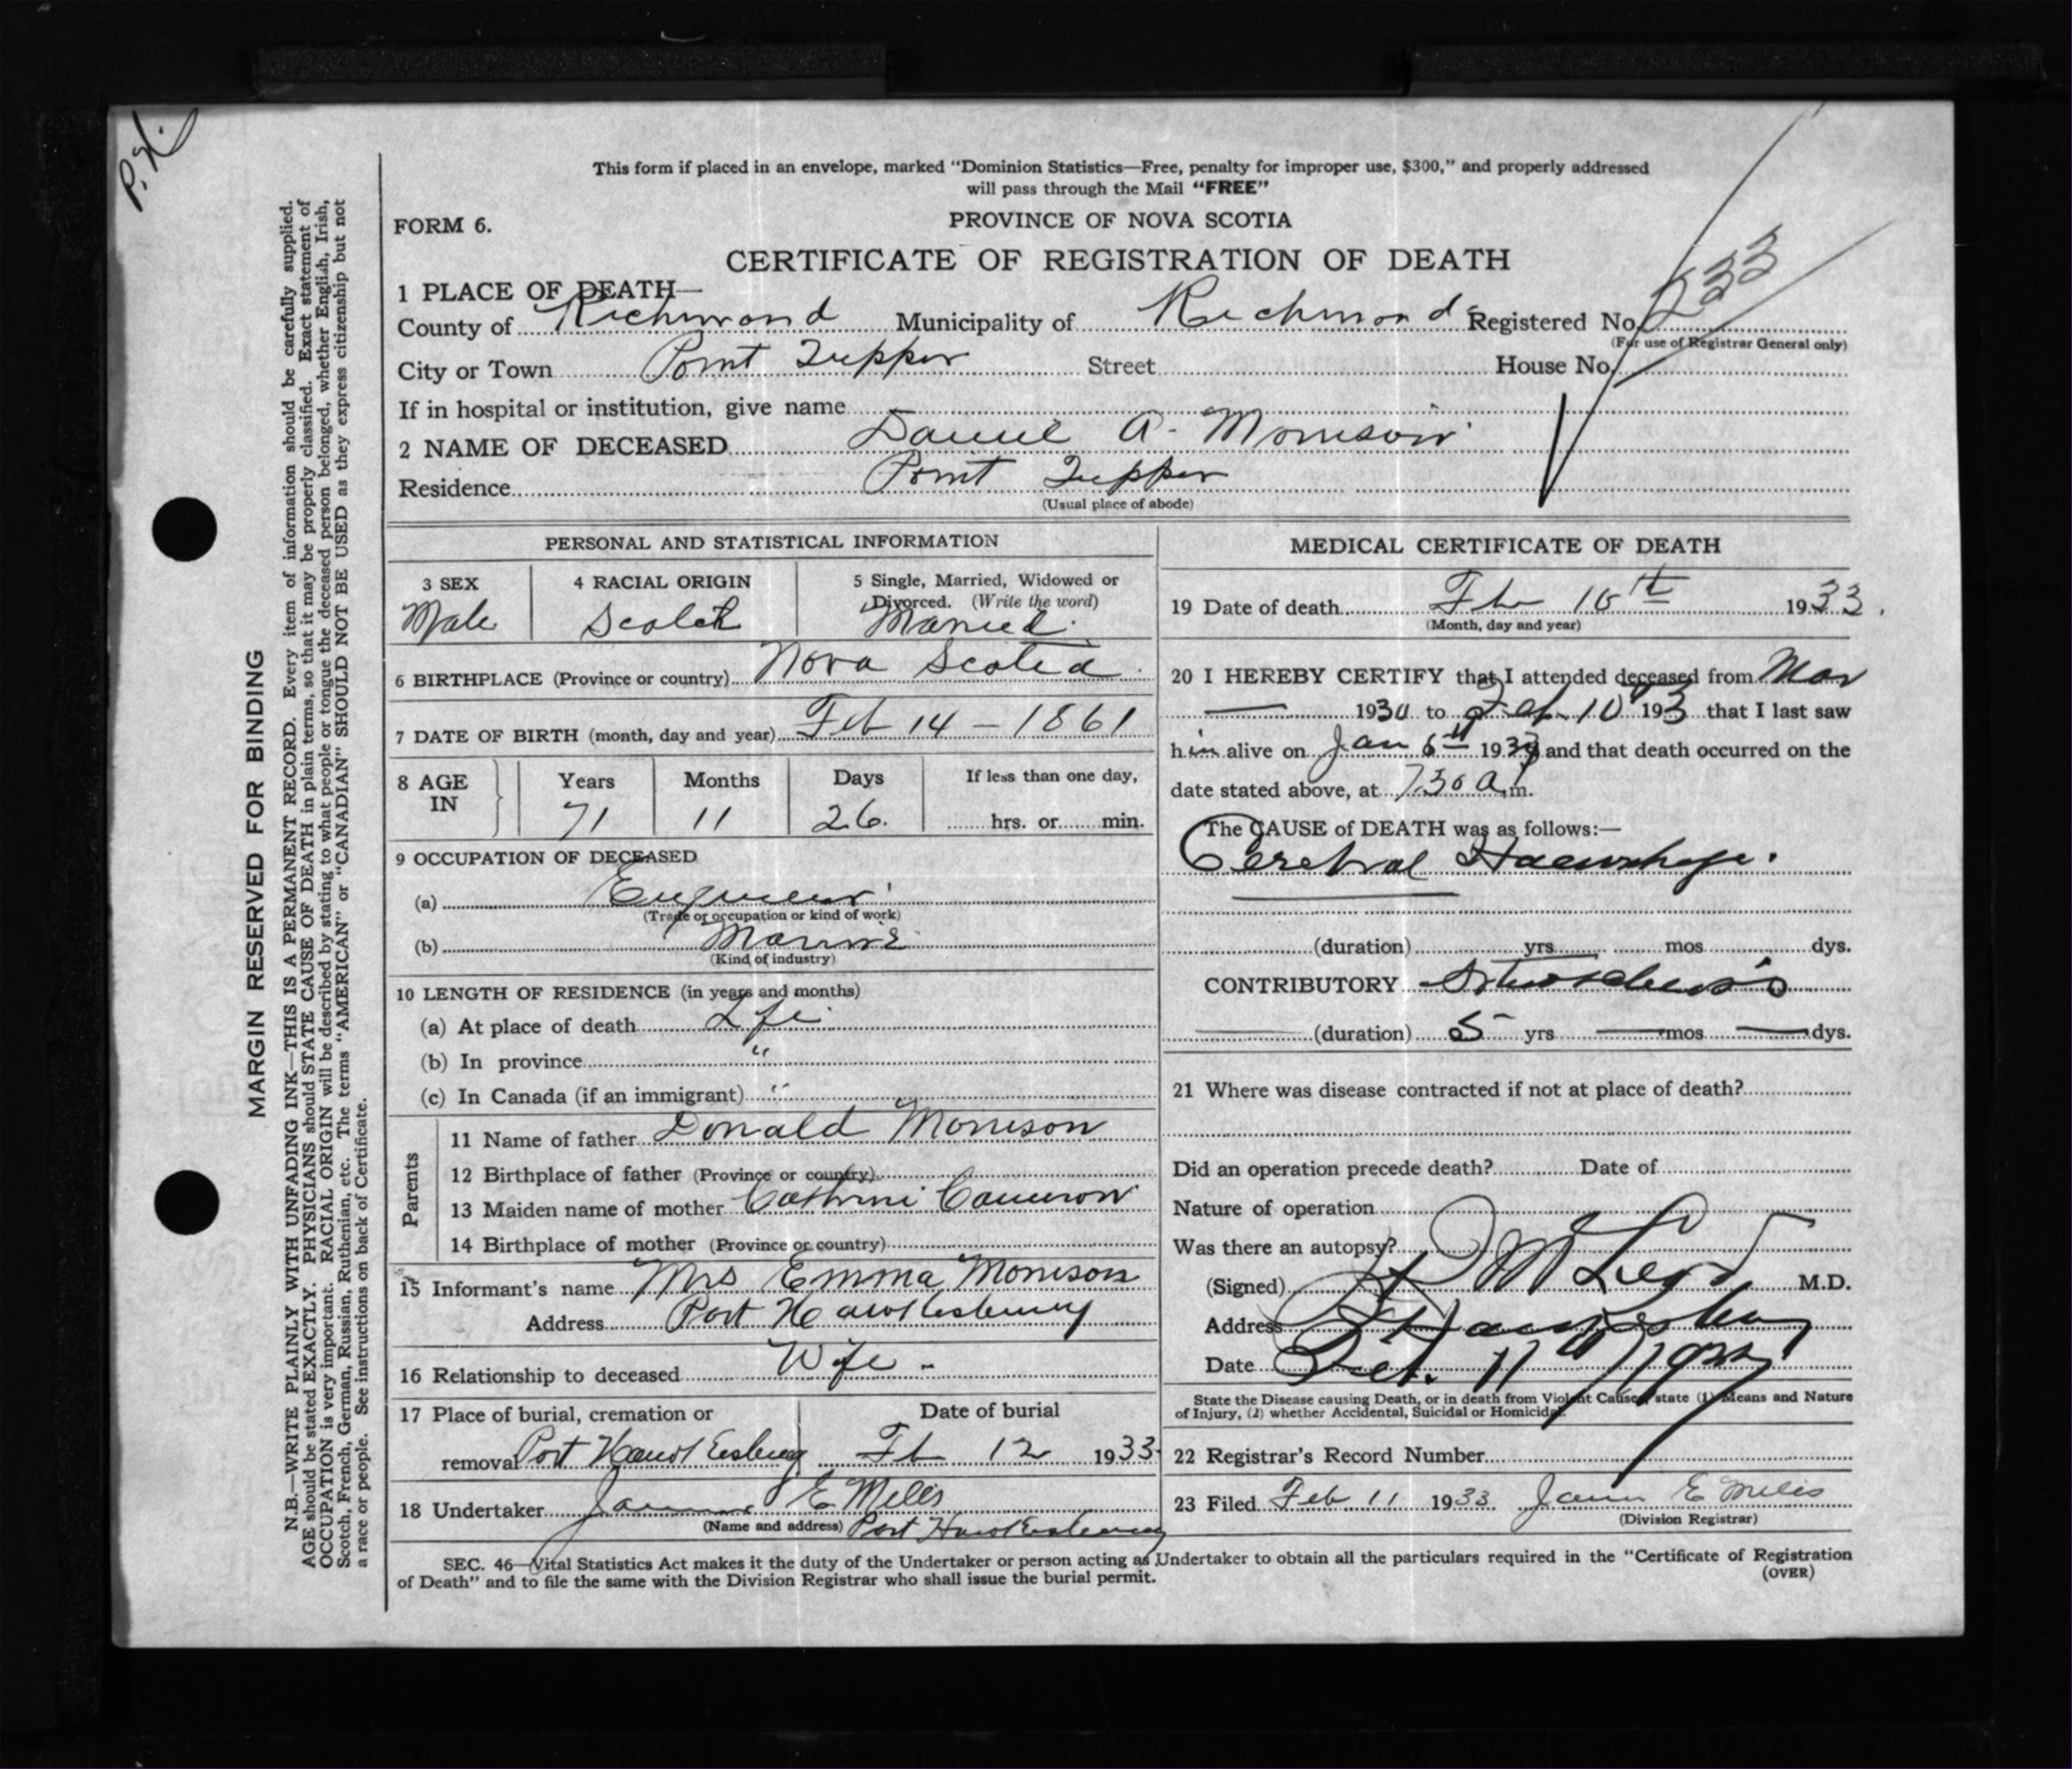 P.H.
This form if placed in an envelope, marked "Dominion Statistics—Free, penalty for improper use, $300," and properly addressed
will pass through the Mail "FREE"
FORM 6.
PROVINCE OF NOVA SCOTIA
CERTIFICATE OF REGISTRATION OF DEATH
1 PLACE OF DEATH—
County of Richmond Municipality of Richmond Registered No. 233
(For use of Registrar General only)
City or Town Point Tupper Street House No.
If in hospital or institution, give name
2 NAME OF DECEASED Daniel A. Morrison
Residence Point Tupper
(Usual place of abode)
PERSONAL AND STATISTICAL INFORMATION
3 SEX 4 RACIAL ORIGIN 5 Single, Married, Widowed or
Divorced. (Write the word)
Male Scotch Married
6 BIRTHPLACE (Province or country) Nova Scotia
7 DATE OF BIRTH (month, day and year) Feb 14 – 1861
8 AGE IN Years Months Days If less than one day,
71 11 26. hrs. or min.
9 OCCUPATION OF DECEASED
(a) Engineer
(Trade or occupation or kind of work)
(b) Marine
(Kind of industry)
10 LENGTH OF RESIDENCE (in years and months)
(a) At place of death Life
(b) In province "
(c) In Canada (if an immigrant) "
Parents
11 Name of father Donald Morrison
12 Birthplace of father (Province or country)
13 Maiden name of mother Cathrine Cameron
14 Birthplace of mother (Province or country)
15 Informant's name Mrs Emma Morrison
Address Port Hawkesbury
16 Relationship to deceased Wife
17 Place of burial, cremation or Date of burial
removal Port Hawkesbury Feb 12 1933
18 Undertaker James E Mills
(Name and address) Port Hawkesbury
MEDICAL CERTIFICATE OF DEATH
19 Date of death Feb 10th 1933.
(Month, day and year)
20 I HEREBY CERTIFY that I attended deceased from Mar
— 1930 to Feb. 10 193 3 that I last saw
him alive on Jan 6th 1933 and that death occurred on the
date stated above, at 7.30 a.m.
The CAUSE of DEATH was as follows:—
Cerebral Haemorrhage.
(duration) yrs mos dys.
CONTRIBUTORY Arteriosclerosis
(duration) 5 yrs — mos — dys.
21 Where was disease contracted if not at place of death?
Did an operation precede death? Date of
Nature of operation
Was there an autopsy?
(Signed) McLeod M.D.
Address Pt Hawkesbury
Date Feb. 11th 1933
State the Disease causing Death, or in death from Violent Causes, state (1) Means and Nature
of Injury, (2) whether Accidental, Suicidal or Homicidal.
22 Registrar's Record Number
23 Filed Feb 11 1933. James E Mills
(Division Registrar)
SEC. 46—Vital Statistics Act makes it the duty of the Undertaker or person acting as Undertaker to obtain all the particulars required in the "Certificate of Registration
of Death" and to file the same with the Division Registrar who shall issue the burial permit.
(OVER)
MARGIN RESERVED FOR BINDING
N.B.—WRITE PLAINLY WITH UNFADING INK—THIS IS A PERMANENT RECORD. Every item of information should be carefully supplied.
AGE should be stated EXACTLY. PHYSICIANS should STATE CAUSE OF DEATH in plain terms, so that it may be properly classified. Exact statement of
OCCUPATION is very important. RACIAL ORIGIN will be described by stating to what people or tongue the deceased person belonged, whether English, Irish,
Scotch, French, German, Russian, Ruthenian, etc. The terms "AMERICAN" or "CANADIAN" SHOULD NOT BE USED as they express citizenship but not
a race or people. See instructions on back of Certificate.